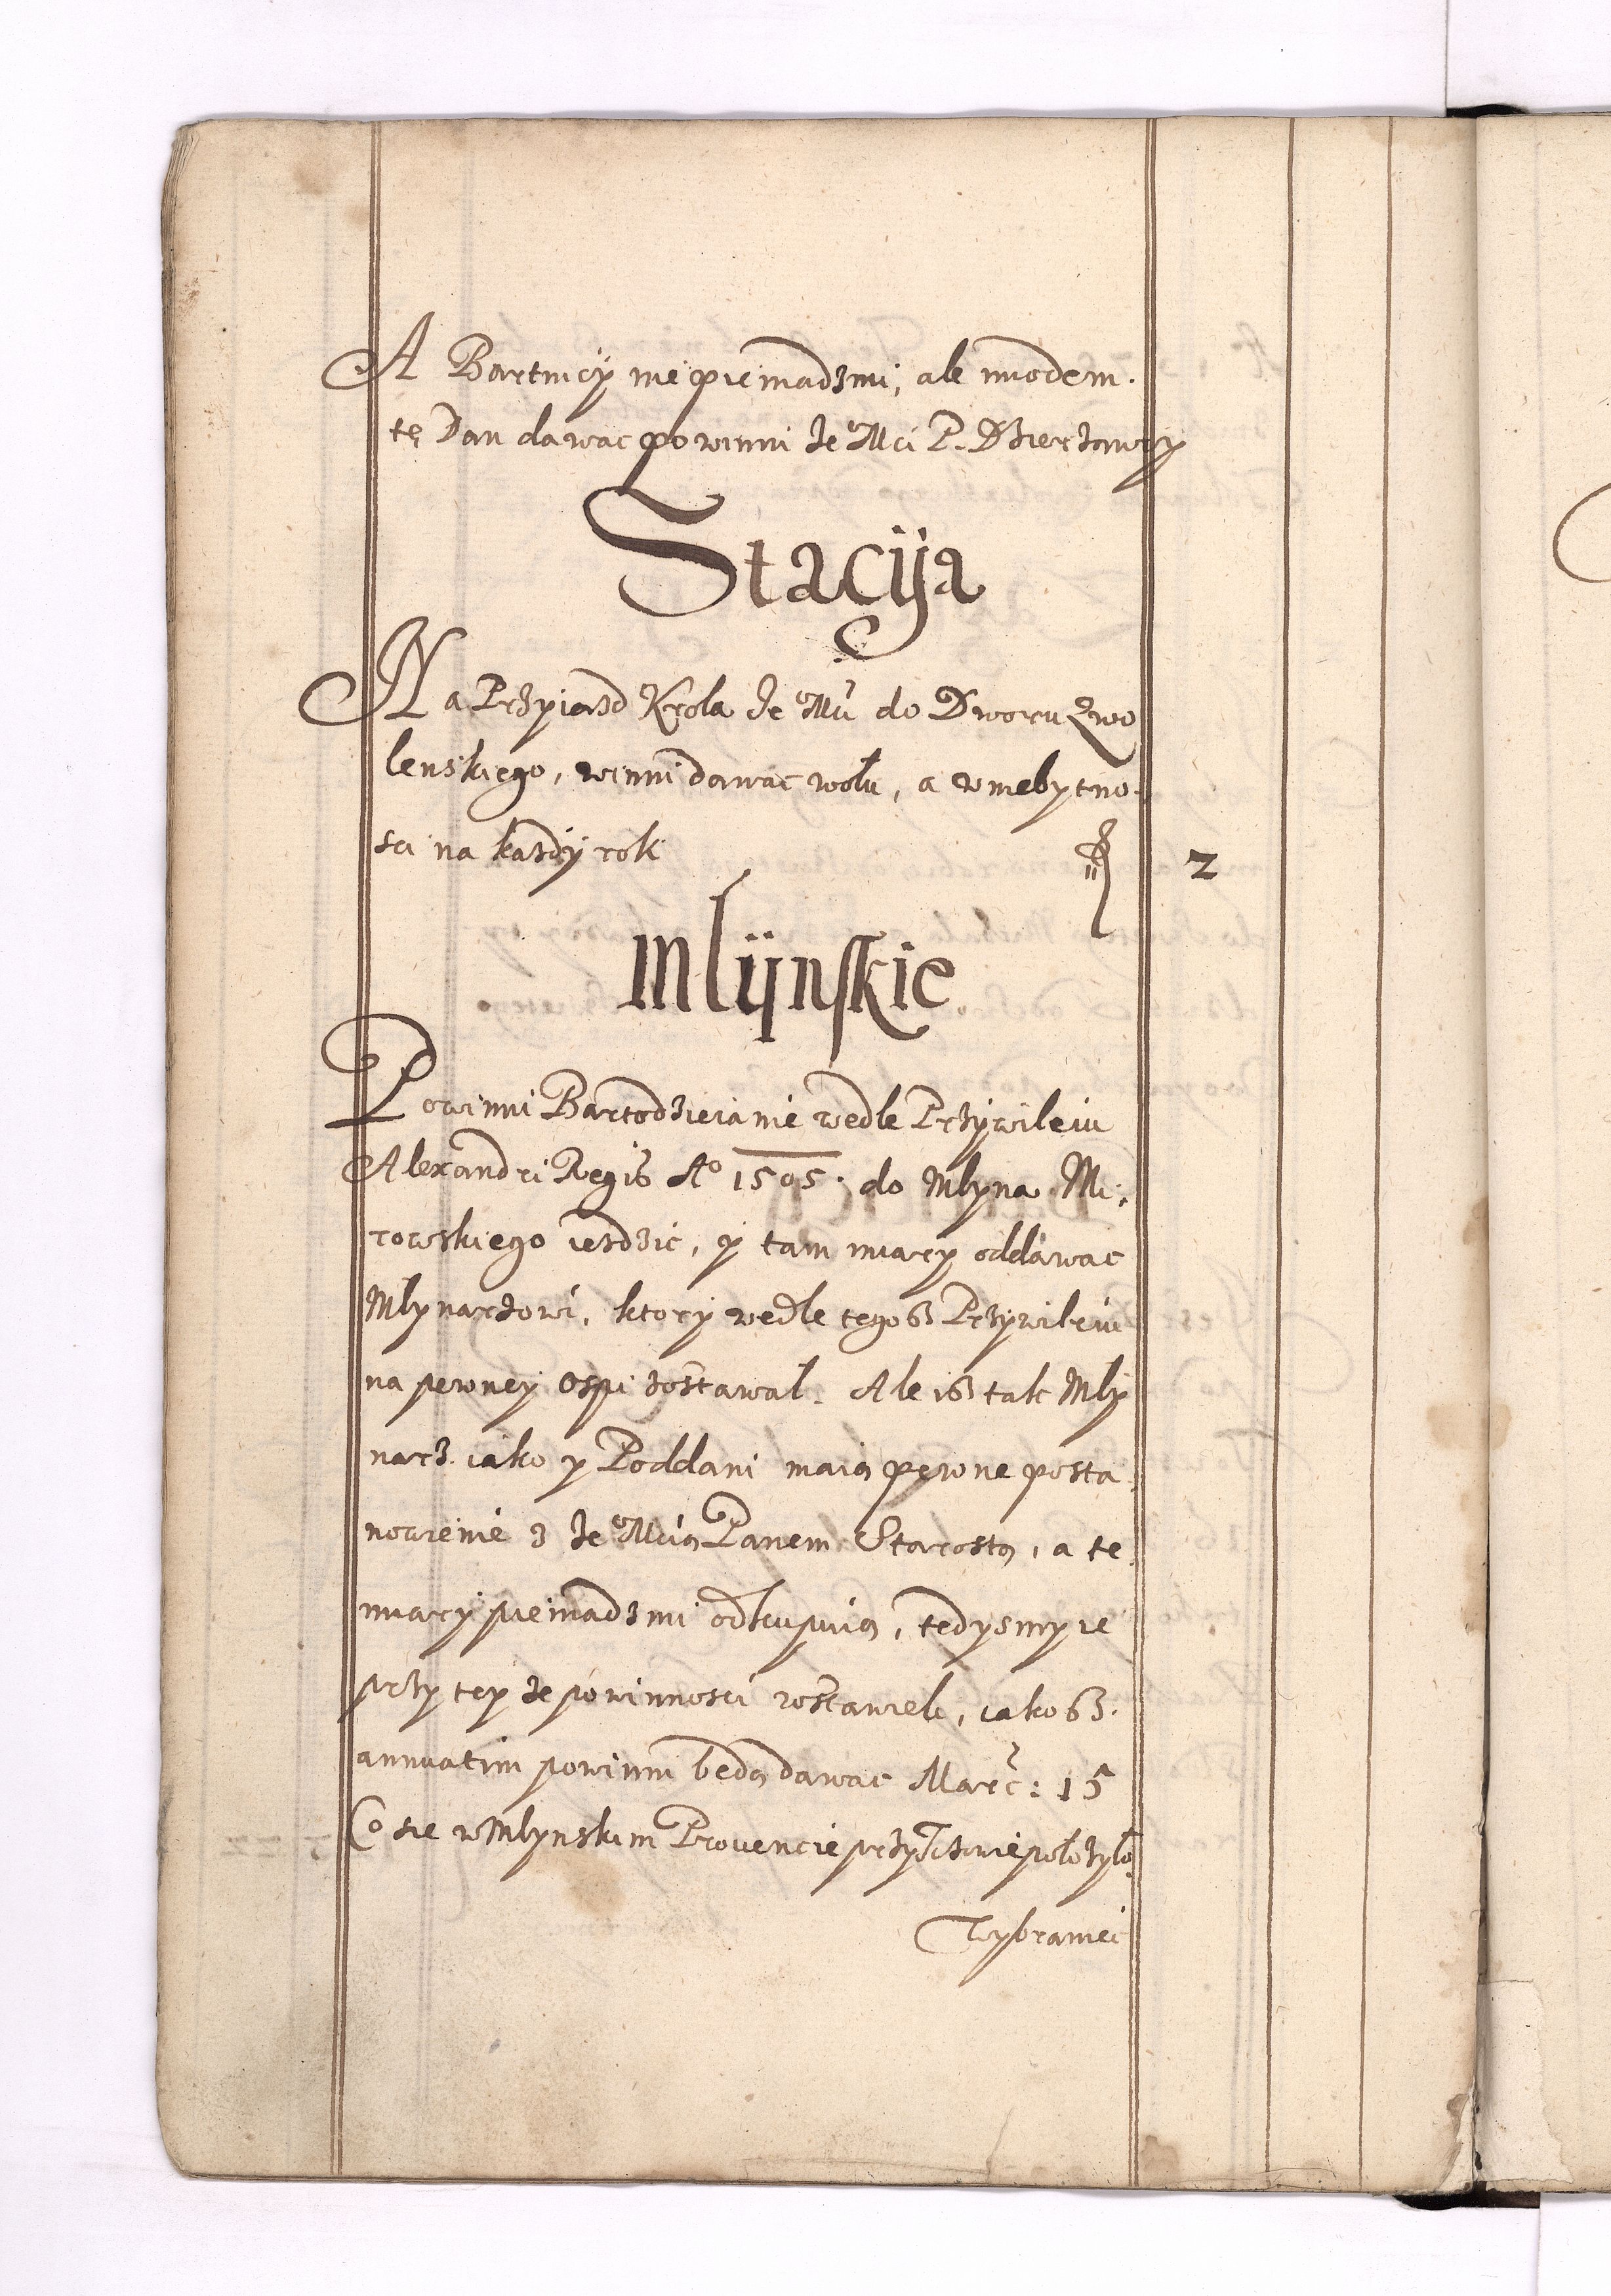 A Bartnicÿ nie pieniadzmi, ale miodem.
tę Dan dawac powinni Je Mci P. Dzierżawcy
Stacÿa
Na Przyiazd Krola Je Mci do Dworu Zwo
lenskiego, winni dawac wołu, a w niebytno-
sci na kazdÿ rok 2
Mlÿnskie
Powinni Bartodzieianie wedle Przÿwileiu
Alexandri Regis Aº 1505. do Młyna Mi-
rowskiego iezdzic, y tam miary oddawac
Mlynarzowi, ktory wedle tegosz Przywileiu
na pewney ospi zostawał. Ale isz tak Mly
narz iako y Poddani maią pewne posta-
nowienie z Je Mcią Panem Starostą, a te
miary pieniadzmi odkupuią, tedysmy ie
przy teyże powinnosci zostawieli, iakosz.
annuatim powinni będą dawac Marc: 15
Co sie w Mlynskim Prouencie przy Jczowie położyło.
Wybraniec